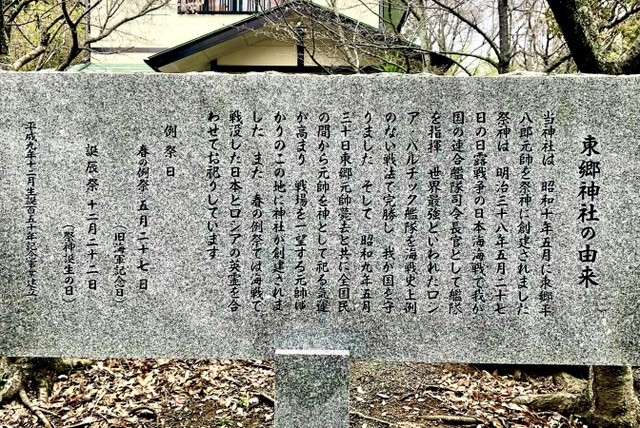 東郷神社の由来
当神社は 昭和十年五月に東郷平
八郎元帥を祭神に創建されました
祭神は 明治三十八年五月二十七
日の日露戦争の日本海海戦で我が
国の連合艦隊司令長官として艦隊
を指揮 世界最強といわれたロシ
ア・バルチック艦隊を海戦史上例
のない戦法で完勝し 我が国を守
りました そして 昭和九年五月
三十日東郷元帥薨去と共に全国民
の間から元帥を神として祀る気運
が高まり 戦場を一望する元帥ゆ
かりのこの地に神社が創建されま
した また 春の例祭では海戦で
戦没した日本とロシアの英霊を合
わせてお祀りしています
例祭日
春の例祭 五月二十七日
(旧海軍記念日)
誕辰祭 十二月二十二日
(祭神誕生の日)
平成九年十二月生誕百五十年記念事業建立